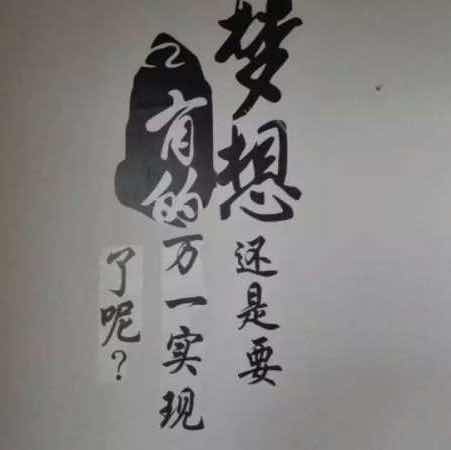 梦想还是要
有的万一实现
了呢？